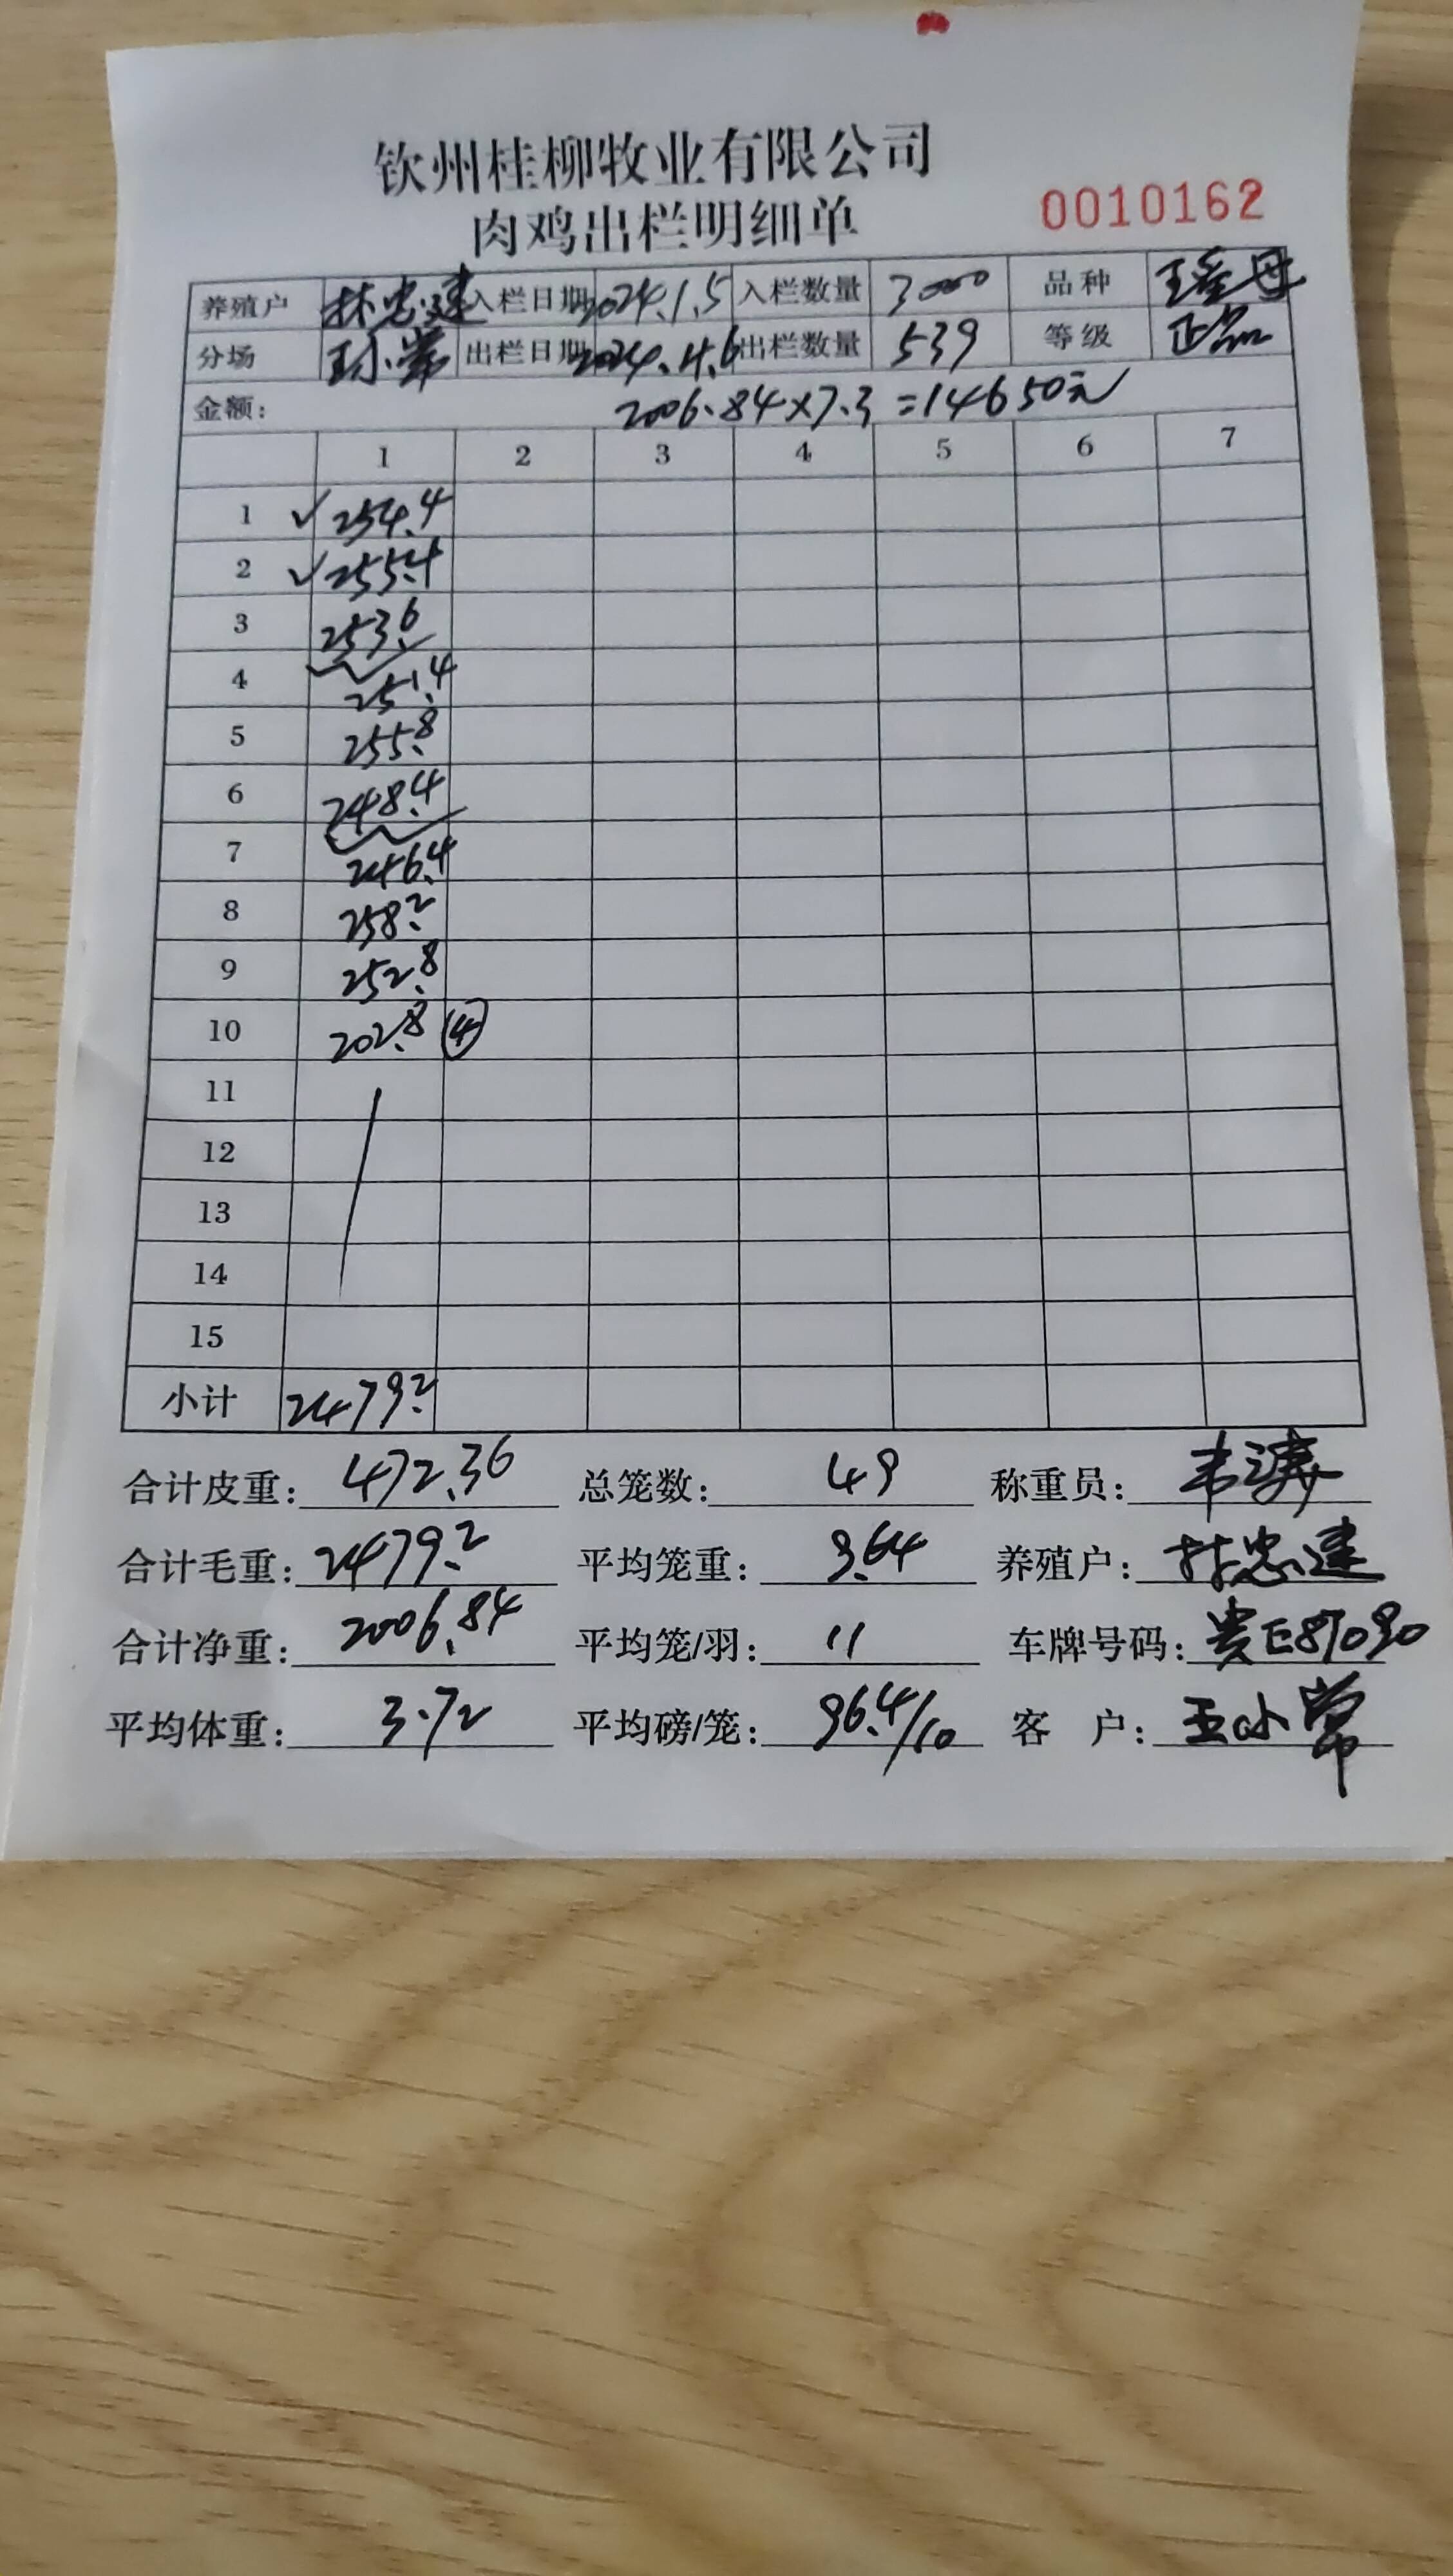 钦州桂柳牧业有限公司
肉鸡出栏明细单
0010162
养殖户 林忠建 入栏日期 2024.1.5 入栏数量 3000 品种 瑶母
分场 王小常 出栏日期 2024.4.6 出栏数量 539 等级 正品
金额: 2006.84×7.3=14650元
1 2 3 4 5 6 7
1 ✓254.4
2 ✓255.4
3 253.6
4 251.4
5 255.8
6 248.4
7 246.4
8 258.2
9 252.8
10 202.8 ④
11
12
13
14
15
小计 2479.2
合计皮重: 472.36 总笼数: 49 称重员: 韦涛
合计毛重: 2479.2 平均笼重: 9.64 养殖户: 林忠建
合计净重: 2006.84 平均笼/羽: 11 车牌号码: 贵E87090
平均体重: 3.72 平均磅/笼: 96.4/10 客 户: 王小常